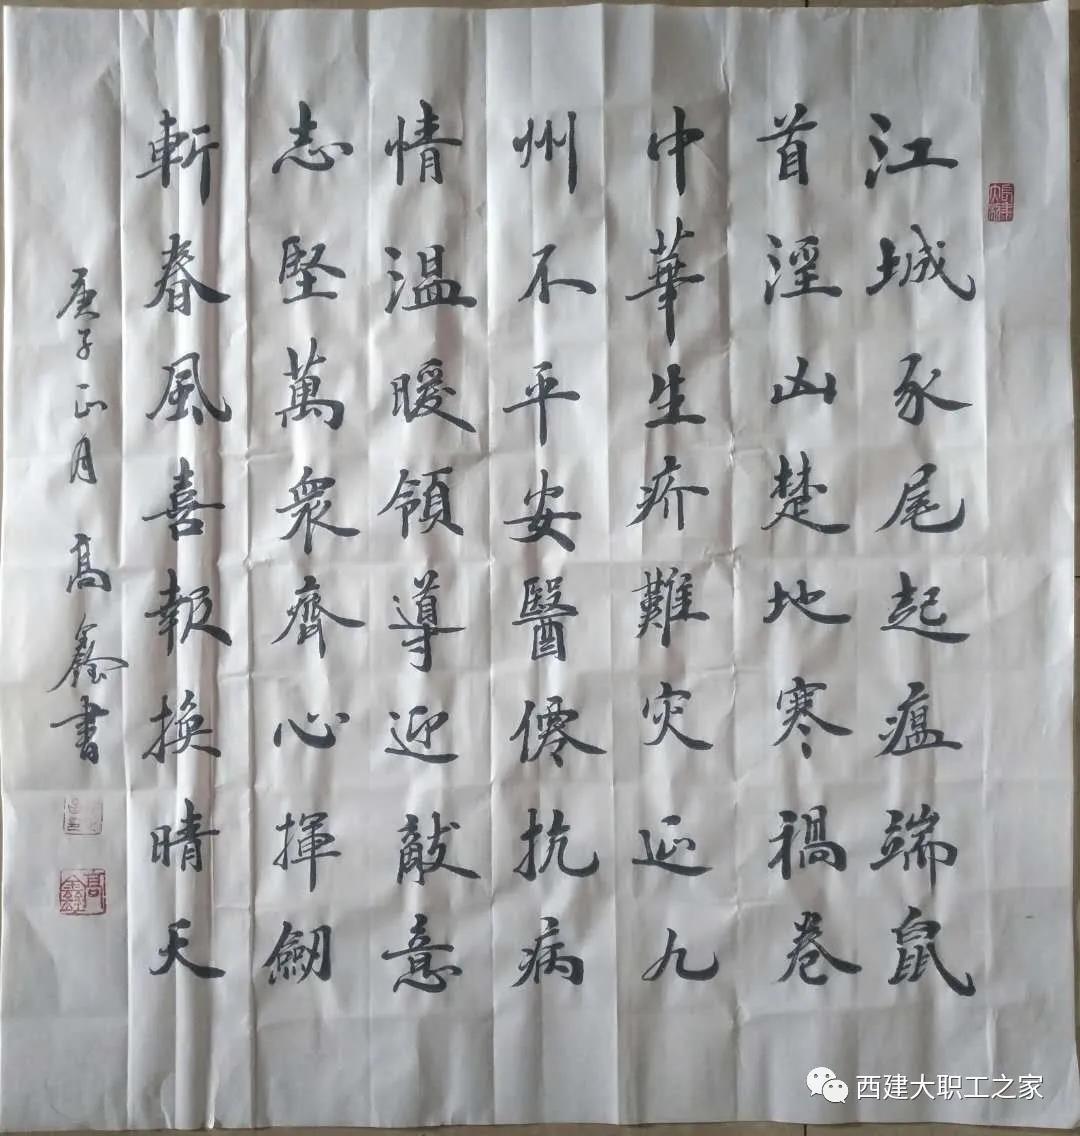 江城豕尾起瘟端鼠
首淫山楚地寒禍卷
中華生疥難灾延九
州不平安醫僚抗病
情温暖領導迎敵意
志堅萬衆齊心揮劒
斬春風喜報換晴天
庚子正月 高鑫書
高鑫
西建大职工之家